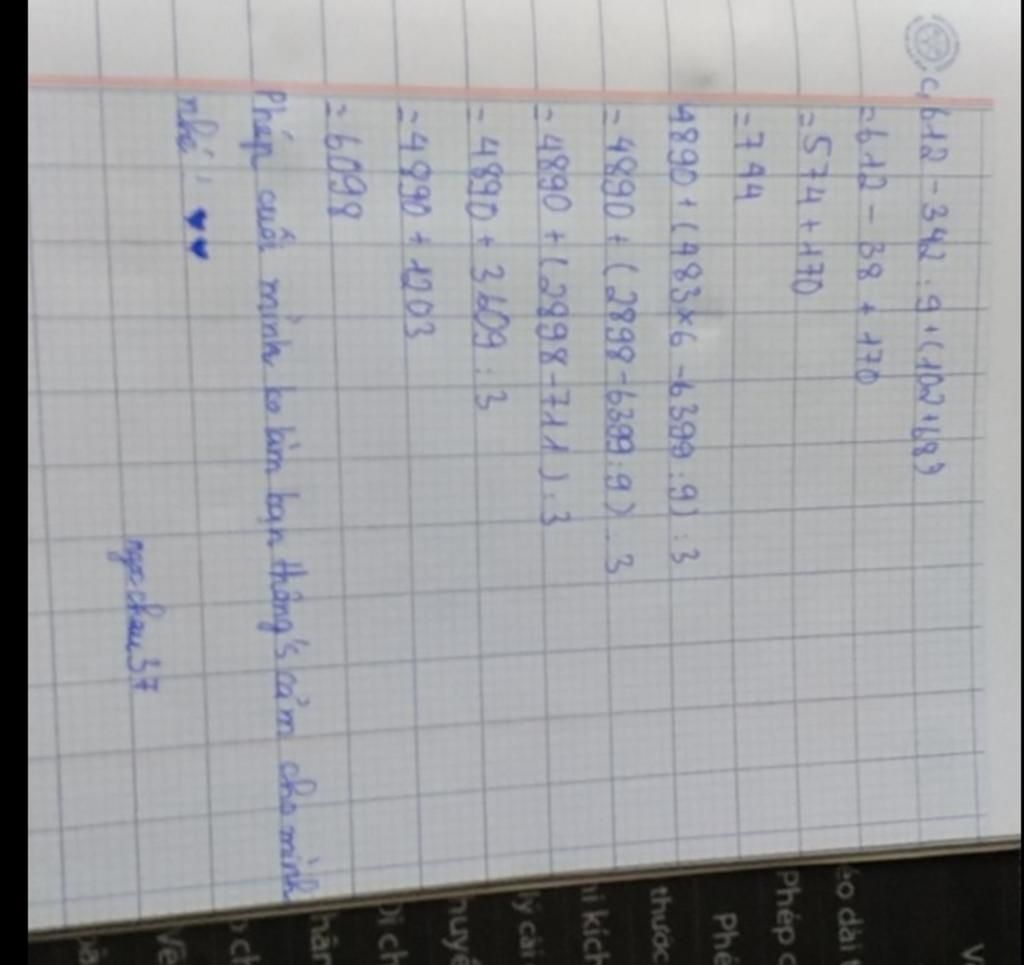 c, 612 - 342 : 9 + (102 + 68)
= 612 - 38 + 170
= 574 + 170
= 744
4890 + (483 x 6 - 6399 : 9) : 3
= 4890 + (2898 - 6399 : 9) : 3
= 4890 + (2898 - 711) : 3
= 4890 + 3609 : 3
= 4890 + 1203
= 6098
Phép cuối mình ko làm bạn thông's cảm cho mình
nhé! ♥♥
ngocchau37
V
áo dài
Phép c
Phé
thước
hi kích
lý cài
huyể
Di ch
hân
o ch
Vẽ